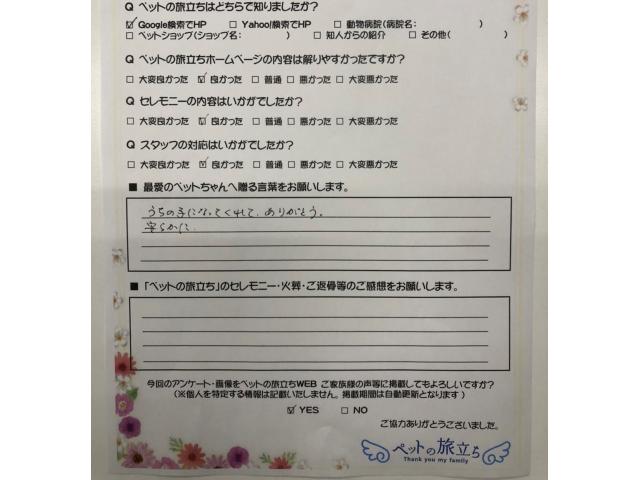 Q ペットの旅立ちはどちらで知りましたか?
☑ Google検索でHP □ Yahoo!検索でHP □ 動物病院(病院名: )
□ ペットショップ(ショップ名: ) □ 知人からの紹介 □ その他( )
Q ペットの旅立ちホームページの内容は解りやすかったですか?
□ 大変良かった ☑ 良かった □ 普通 □ 悪かった □ 大変悪かった
Q セレモニーの内容はいかがでしたか?
□ 大変良かった ☑ 良かった □ 普通 □ 悪かった □ 大変悪かった
Q スタッフの対応はいかがでしたか?
□ 大変良かった ☑ 良かった □ 普通 □ 悪かった □ 大変悪かった
■ 最愛のペットちゃんへ贈る言葉をお願いします。
うちの子になってくれて、ありがとう。
安らかに。
■ 「ペットの旅立ち」のセレモニー・火葬・ご返骨等のご感想をお願いします。
今回のアンケート・画像をペットの旅立ちWEB ご家族様の声等に掲載してもよろしいですか?
(※個人を特定する情報は記載いたしません。掲載期間は自動更新となります)
☑ YES □ NO
ご協力ありがとうございました。
ペットの旅立ち
Thank you my family